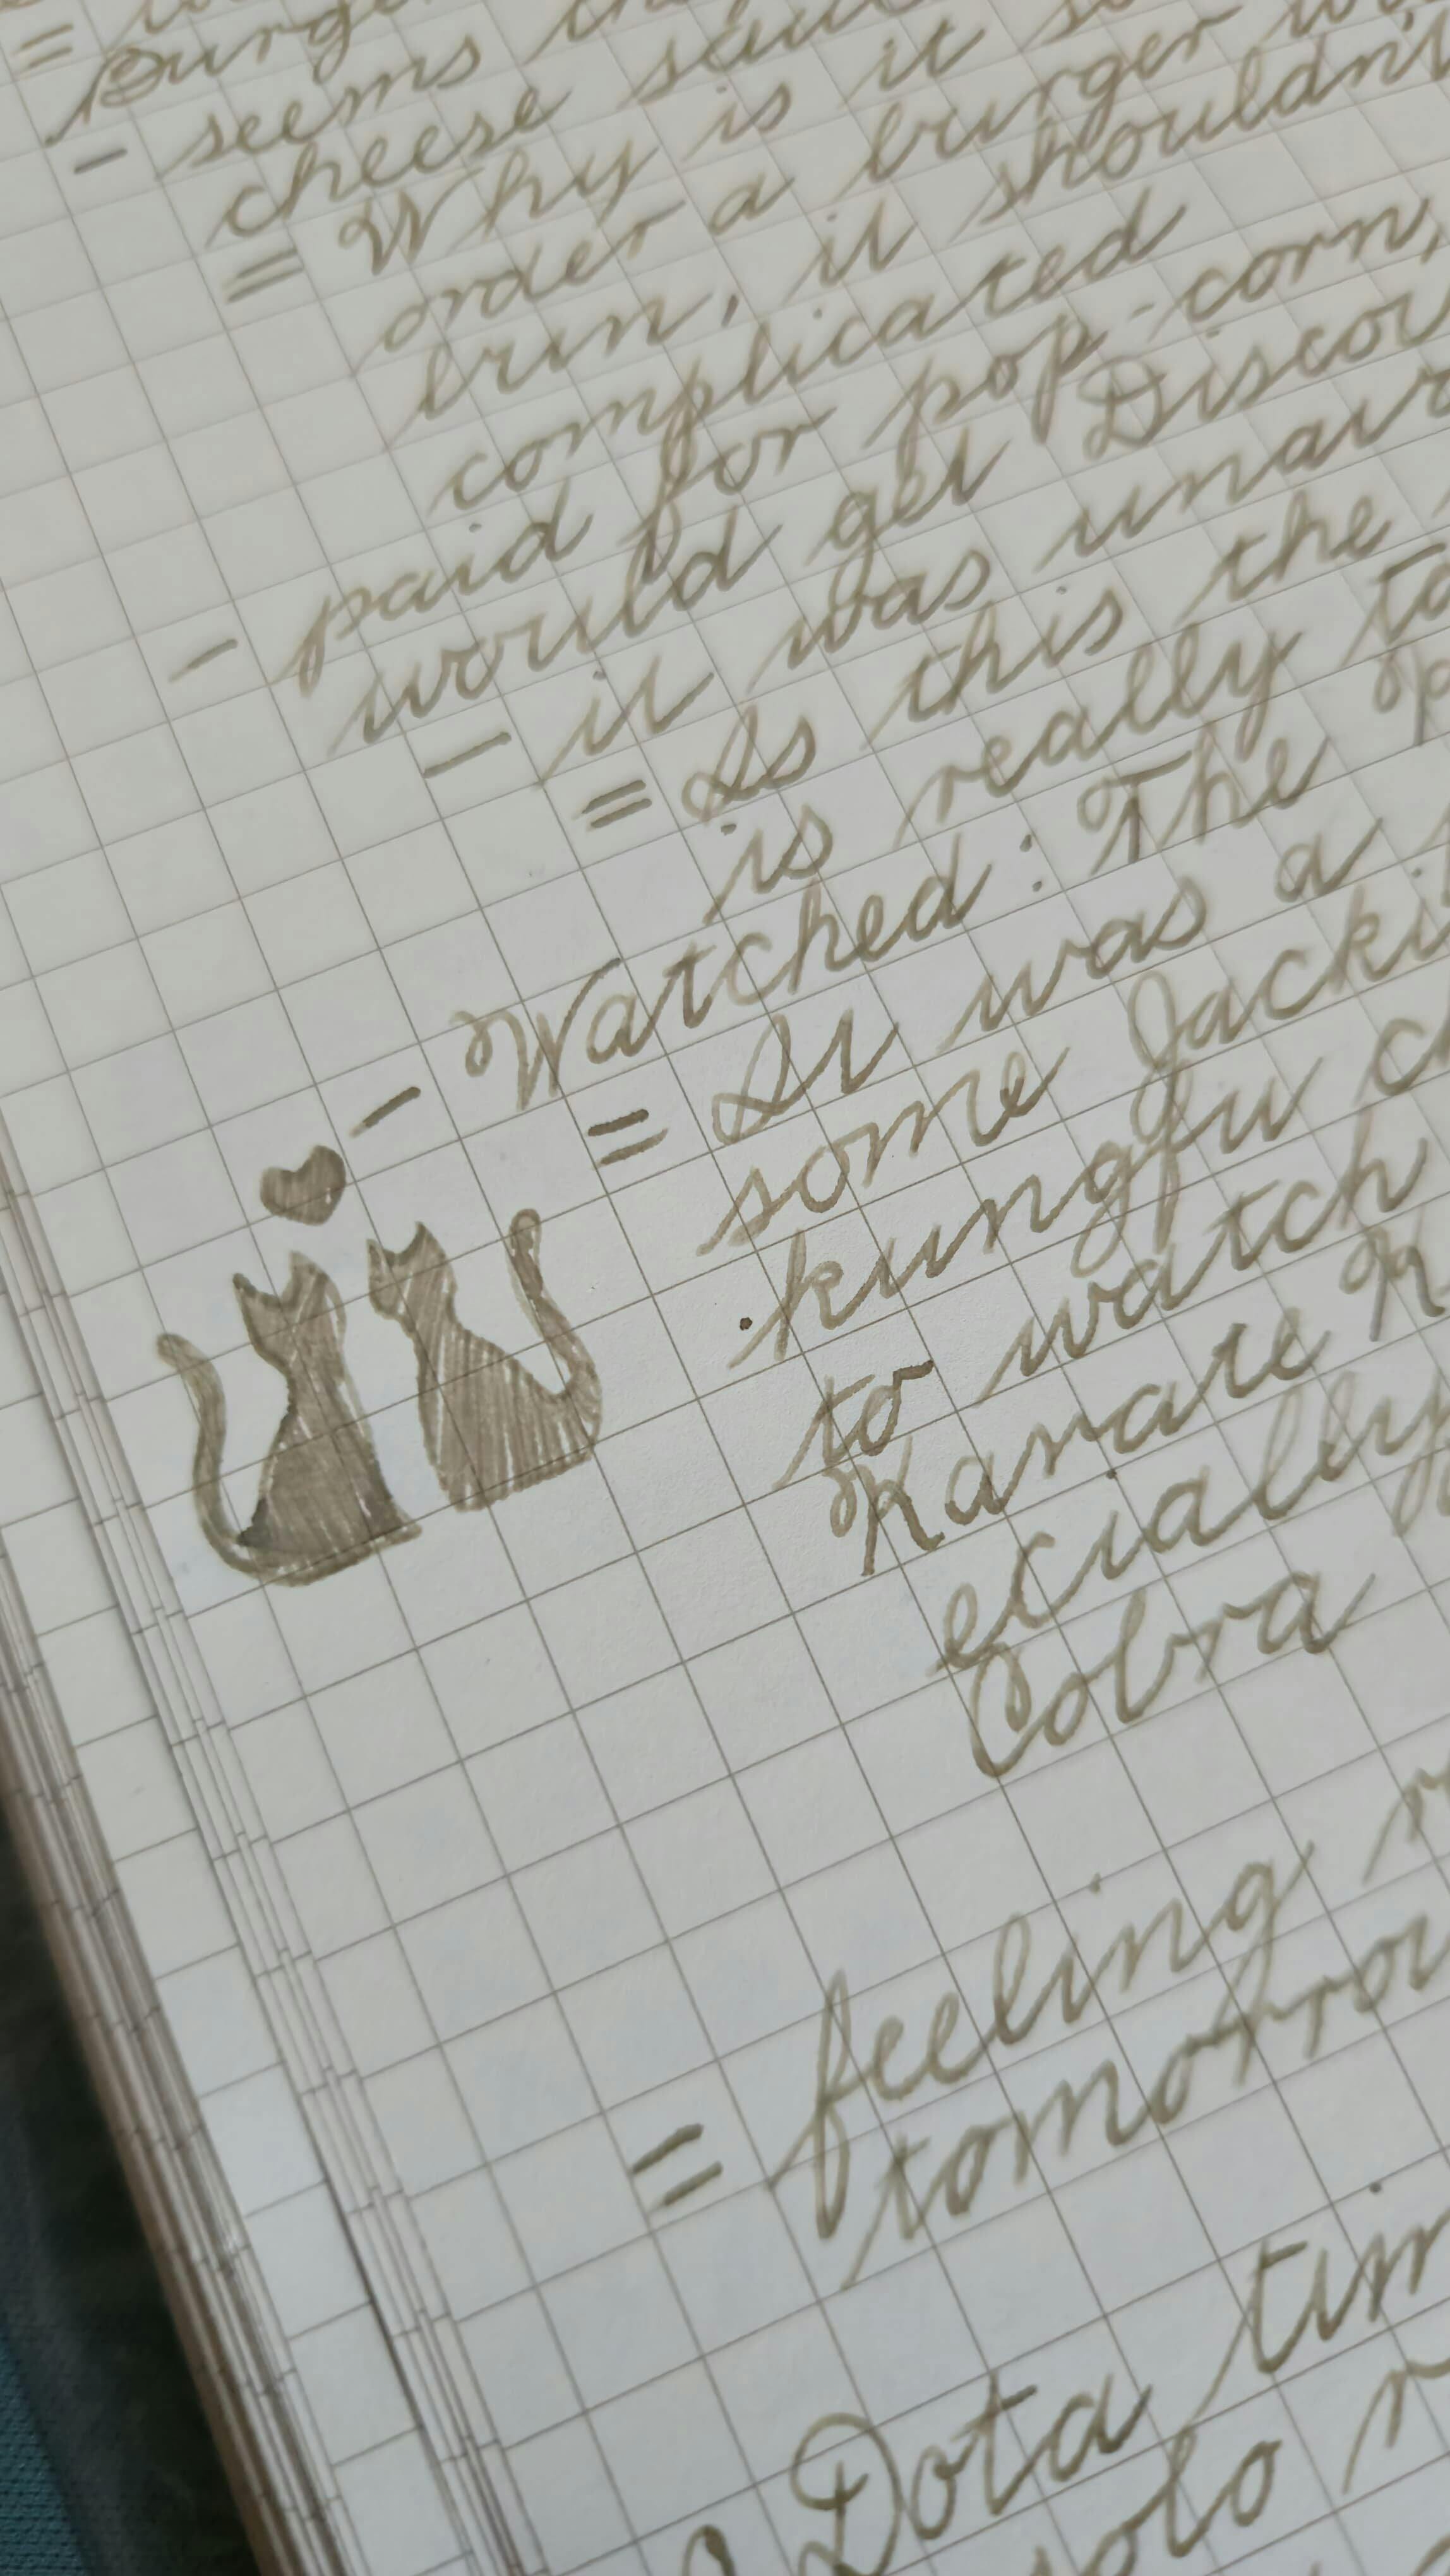 =
Burge
- seems the
cheese sau
= Why is it so
order a burger wi
bun, it shouldn't
complicated
- paid for pop-corn,
would get Discou
- it was unawa
= Is this the
is really ta
- Watched: The
= It was a
some Jacki
kungfu c
to watch
Karate K
ecially
Cobra
= feeling
tomorrow
Dota tim
solo